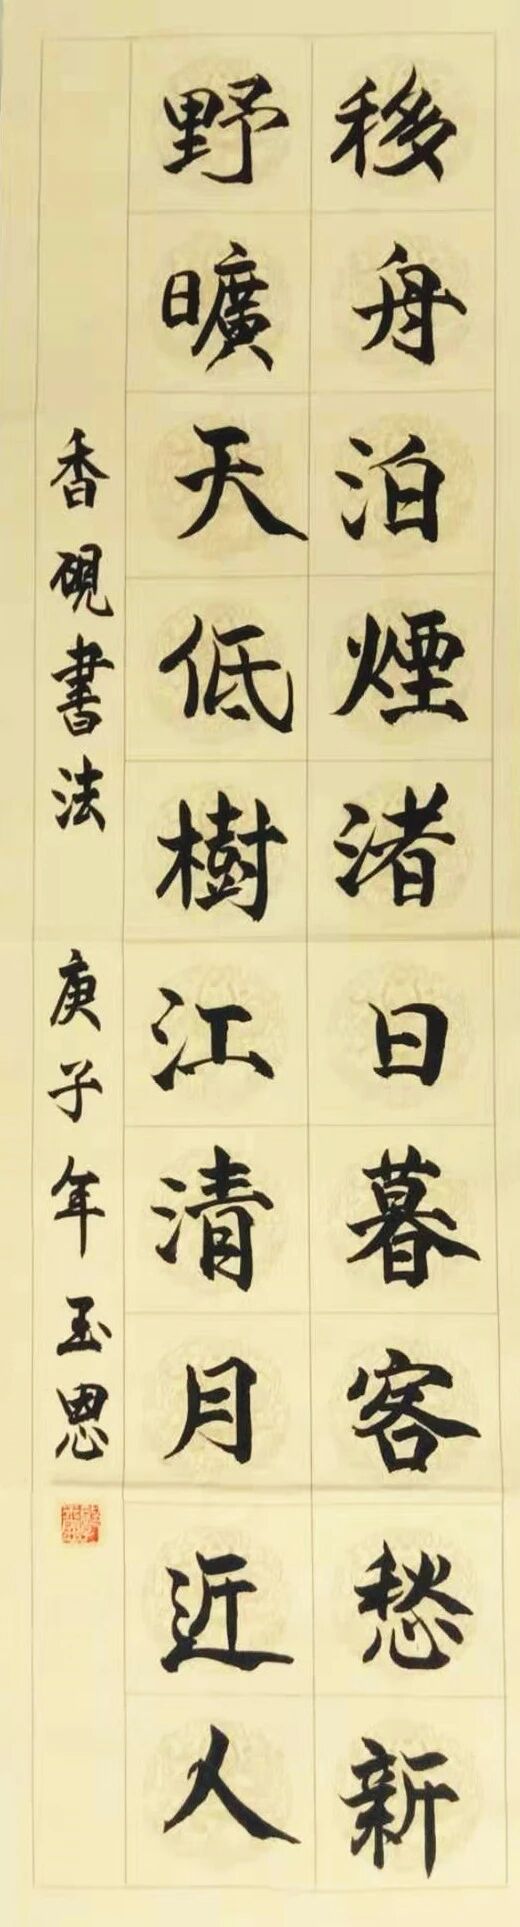 移舟泊煙渚日暮客愁新
野曠天低樹江清月近人
香硯書法 庚子年玉恩